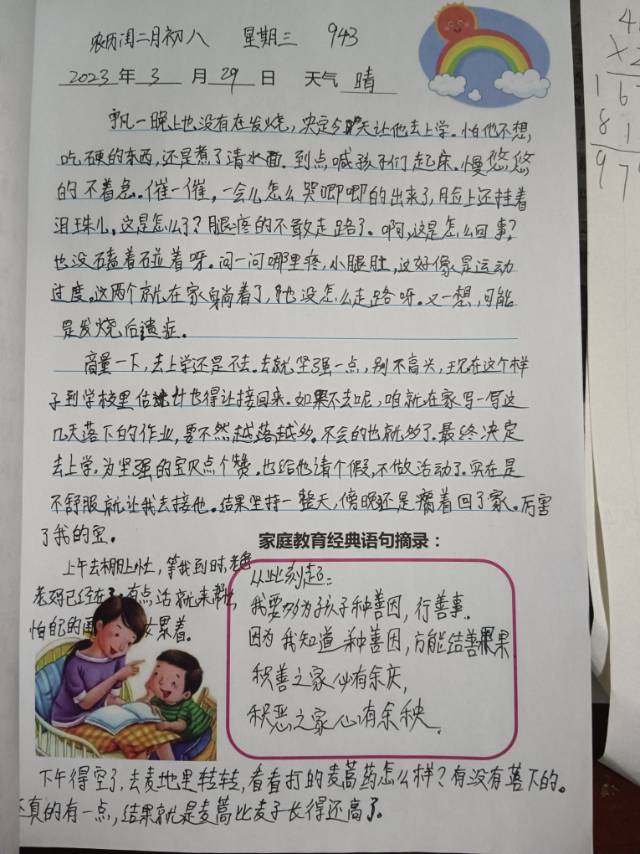 农历闰二月初八 星期三 943
2023年3月29日 天气 晴
凡一晚上也没有在发烧，决定今天让他去上学。怕他不想
吃硬的东西，还是煮了清水面。到点喊孩子们起床。慢悠悠
的不着急。催一催，一会儿怎么哭唧唧的出来了，脸上还挂着
泪珠儿。这是怎么了？腿疼的不敢走路了。啊，这是怎么回事？
也没磕着碰着呀。问一问哪里疼，小腿肚，这好像是运动
过度。这两个就在家躺着了，也没怎么走路呀。又一想，可能
是发烧后遗症。
商量一下，去上学还是不去。去就坚强一点，别不高兴，现在这个样
子到学校里估计也得让接回来。如果不去呢，咱就在家写一写这
几天落下的作业，要不然越落越多。不会的也就多了。最终决定
去上学。为坚强的宝贝点个赞。也给他请个假，不做活动了。实在是
不舒服就让我去接他。结果坚持一整天，傍晚还是瘸着回了家。厉害
了我的宝。
家庭教育经典语句摘录：
上午去棚上
等我到时，老爸
老妈已经在了
有点活就来帮忙
怕自己的
累着。
从此刻起：
我要多为孩子种善因，行善事。
因为我知道种善因，方能结善果
积善之家必有余庆，
积恶之家必有余殃。
下午得空了，去麦地里转转，看看打的麦蒿药怎么样？有没有落下的。
还真的有一点，结果就是麦蒿比麦子长得还高了。
4
X 2
1 6
8 1
9 7